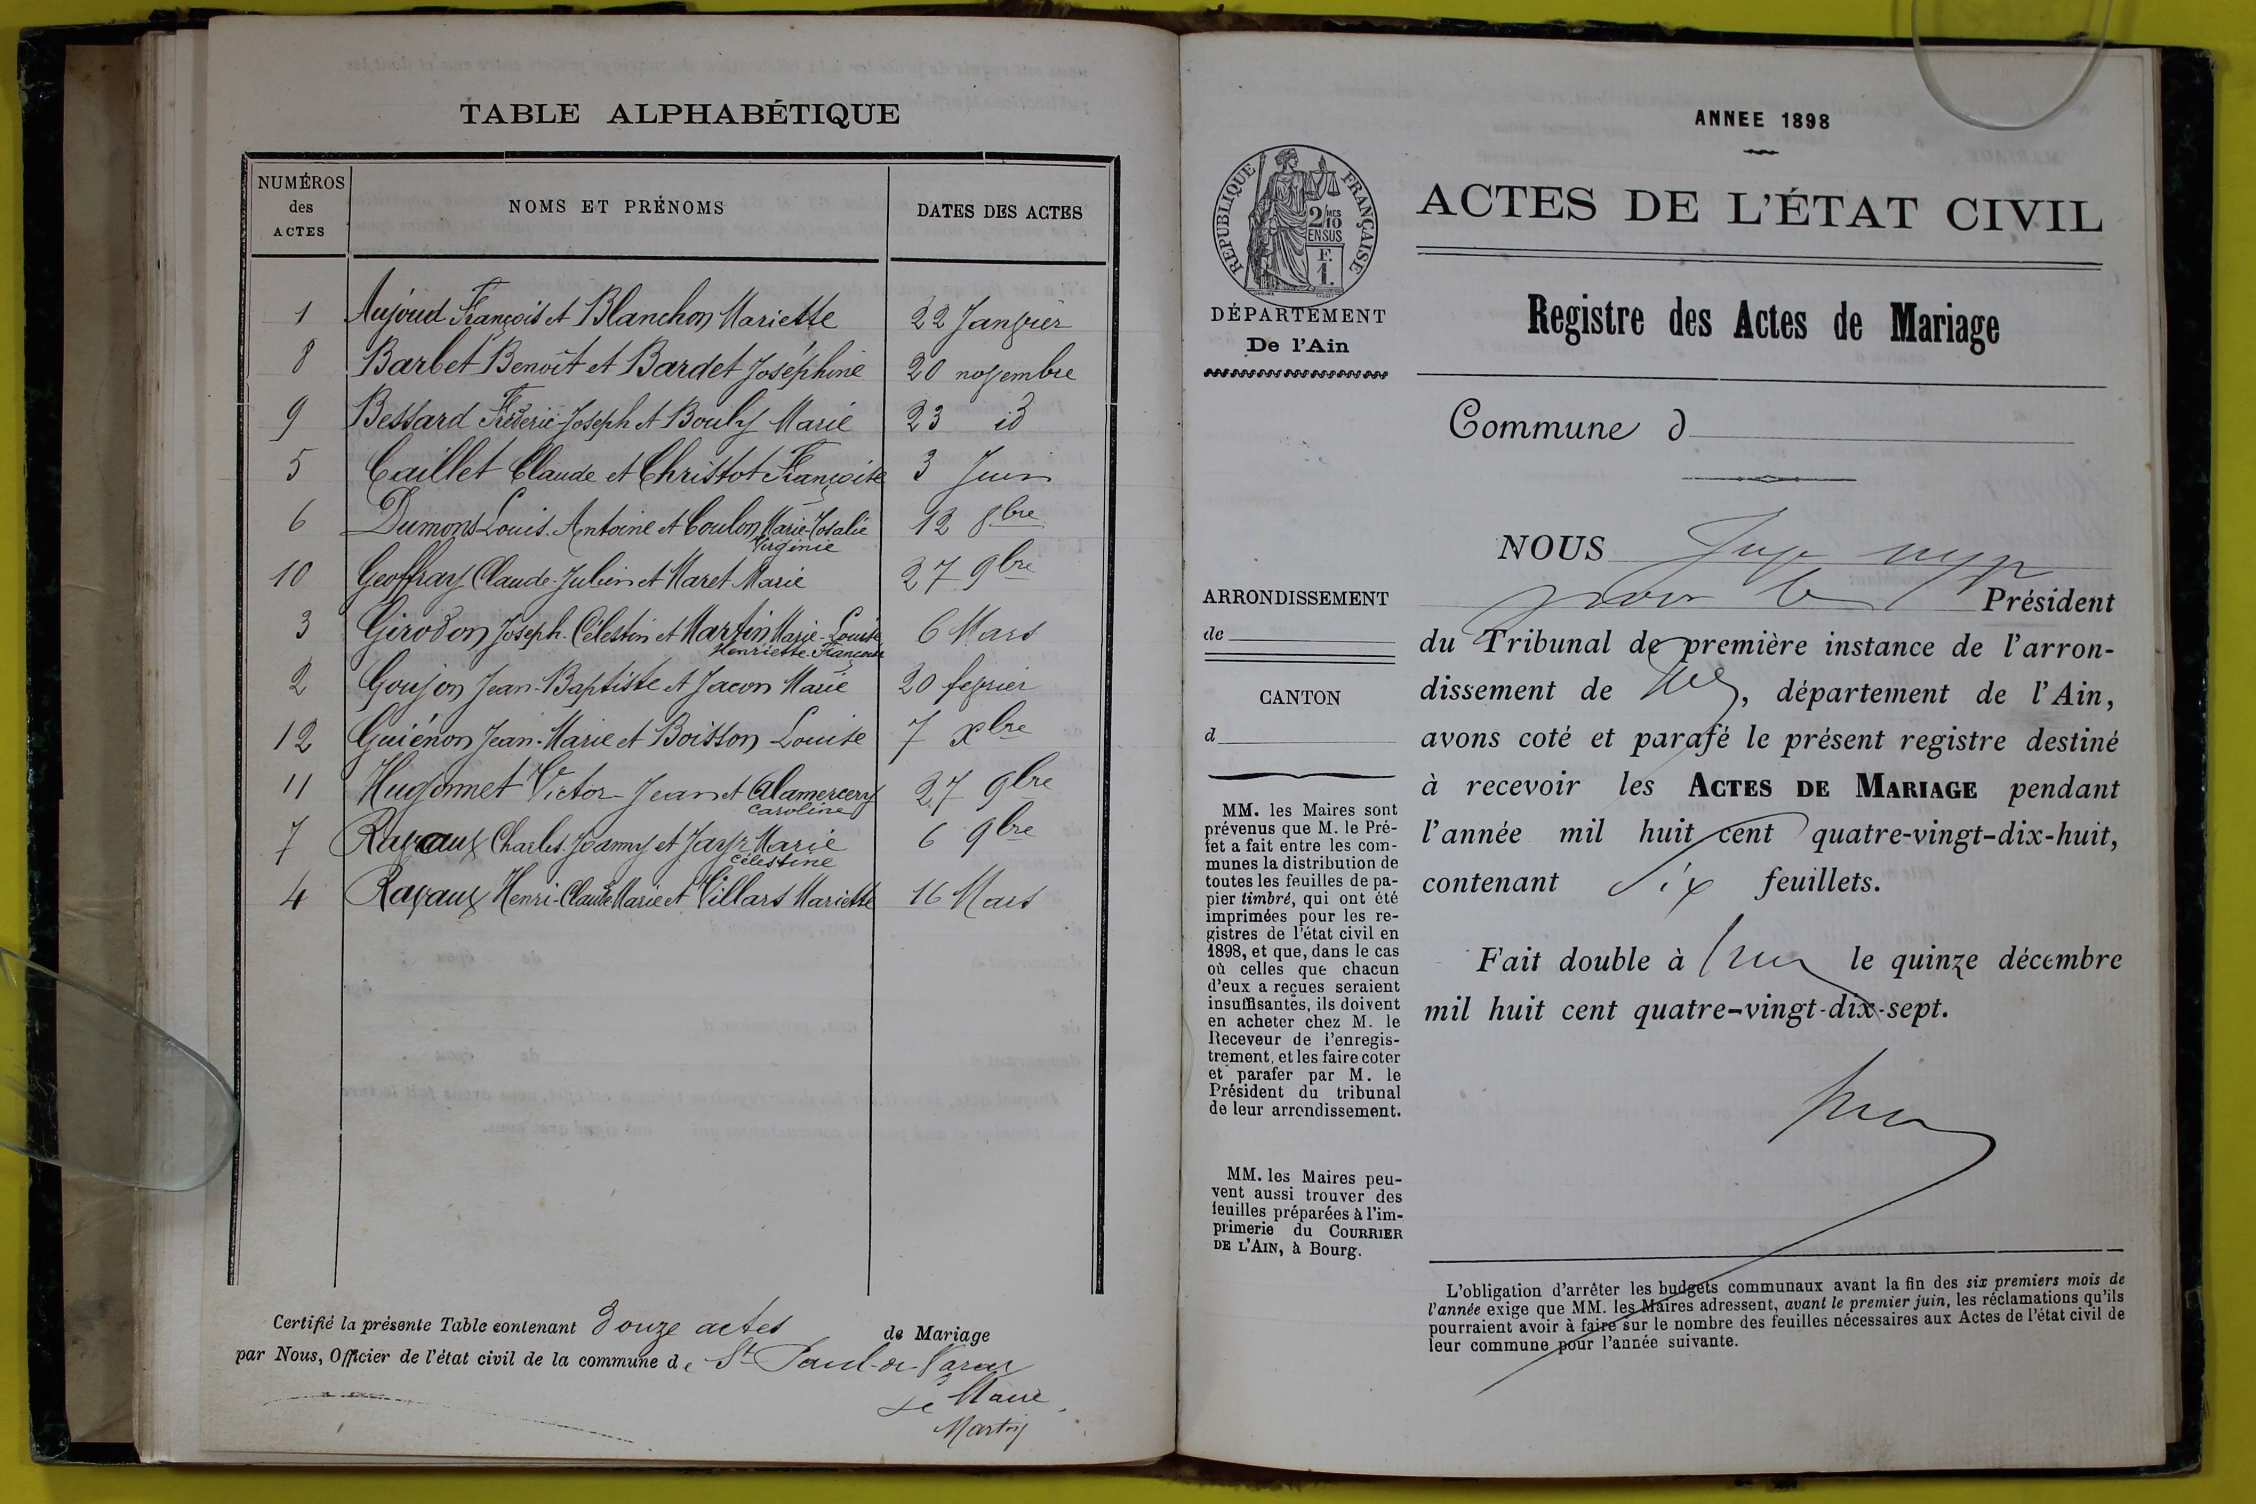 TABLE ALPHABÉTIQUE
NUMÉROS des ACTES NOMS ET PRÉNOMS DATES DES ACTES
1 Aujoud François et Blanchon Mariette 22 Janvier
8 Barbet Benoît et Bardet Joséphine 20 novembre
9 Bessard Frédéric-Joseph et Bouly Marie 23 id
5 Caillet Claude et Christot Françoise 3 Juin
6 Dumons Louis-Antoine et Coulon Marie-Rosalie Virginie 12 8bre
10 Geoffray Claude-Julien et Maret Marie 27 9bre
3 Girodon Joseph-Célestin et Martin Marie-Louise Henriette-Françoise 6 Mars
2 Goujon Jean-Baptiste et Jacon Marie 20 fevrier
12 Guiénon Jean-Marie et Boisson Louise 7 Xbre
11 Hugonnet Victor Jean et Alamercery Caroline 27 9bre
7 Ravaux Charles Joanny et Jayr Marie Célestine 6 9bre
4 Ravaux Henri-Claude Marie et Villars Mariette 16 Mars
Certifié la présente Table contenant douze actes de Mariage
par Nous, Officier de l'état civil de la commune de St Paul-de-Varax
Le Maire
Martin
ANNEE 1898
RÉPUBLIQUE FRANÇAISE
2 MES
10
EN SUS
F.
1.
ACTES DE L'ÉTAT CIVIL
DÉPARTEMENT
De l'Ain
Registre des Actes de Mariage
Commune d
NOUS Juge
pour le Président
du Tribunal de première instance de l'arron-
dissement de , département de l'Ain,
avons coté et parafé le présent registre destiné
à recevoir les ACTES DE MARIAGE pendant
l'année mil huit cent quatre-vingt-dix-huit,
contenant six feuillets.
Fait double à le quinze décembre
mil huit cent quatre-vingt-dix-sept.
ARRONDISSEMENT
de
CANTON
d
MM. les Maires sont
prévenus que M. le Pré-
fet a fait entre les com-
munes la distribution de
toutes les feuilles de pa-
pier timbré, qui ont été
imprimées pour les re-
gistres de l'état civil en
1898, et que, dans le cas
où celles que chacun
d'eux a reçues seraient
insuffisantes, ils doivent
en acheter chez M. le
Receveur de l'enregis-
trement, et les faire coter
et parafer par M. le
Président du tribunal
de leur arrondissement.
MM. les Maires peu-
vent aussi trouver des
feuilles préparées à l'im-
primerie du COURRIER
DE L'AIN, à Bourg.
L'obligation d'arrêter les budgets communaux avant la fin des six premiers mois de
l'année exige que MM. les Maires adressent, avant le premier juin, les réclamations qu'ils
pourraient avoir à faire sur le nombre des feuilles nécessaires aux Actes de l'état civil de
leur commune pour l'année suivante.